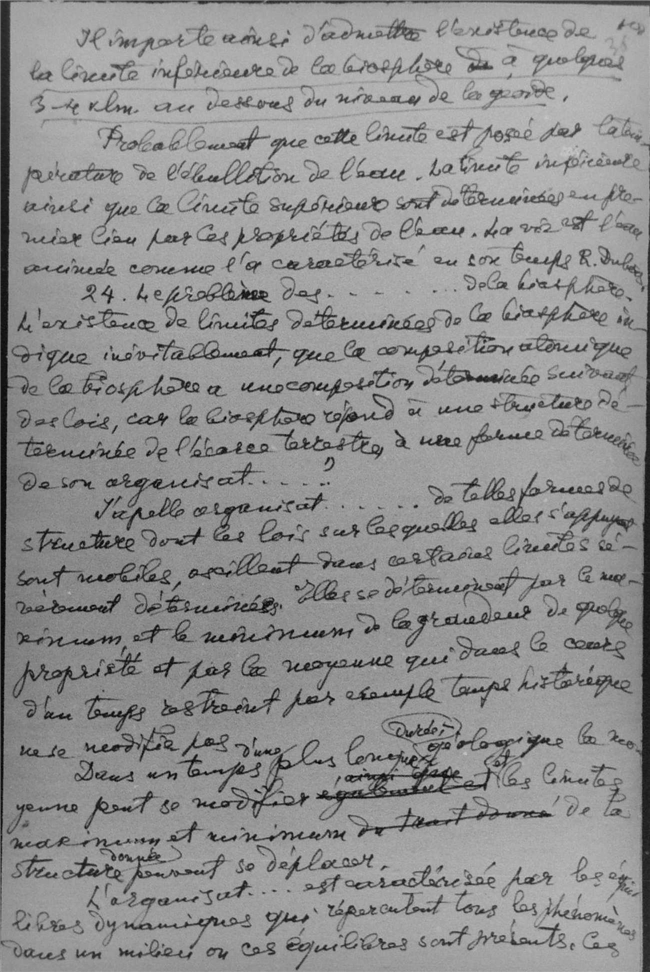 Il importe ainsi d'admettre l'existence de
la limite inférieure de la biosphère à quelques
3-4 klm. au dessous du niveau de la géoïde.
Probablement que cette limite est posée par la tem-
pérature de l'ébullition de l'eau. La limite inférieure
ainsi que la limite supérieure sont déterminées en pre-
mier lieu par les propriétés de l'eau. La vie est l'eau
animée comme l'a caractérisé en son temps R. Dubois.
24. Le problème des . . . . . . . de la biosphère.
L'existence de limites déterminées de la biosphère in-
dique inévitablement, que la composition atomique
de la biosphère a une composition déterminée suivant
des lois, car la biosphère répond à une structure dé-
terminée de l'écorce terrestre, à une forme déterminée
de son organisat . . . . . ?
J'apelle organisat . . . . . . de telles formes de
structure dont les lois sur lesquelles elles s'appuyent
sont mobiles, oscillent dans certains limites sé-
vèrement déterminées. Elles se déterminent par le ma-
ximum et le minimum de la grandeur de quelque
propriété et par la moyenne qui dans le cours
d'un temps restreint par exemple temps historique
ne se modifie pas
Dans un temps d'une plus longue durée géologique la mo-
yenne peut se modifier ainsi que également et les limites
maximum et minimum du trait donné de la
structure donnée peuvent se déplacer.
L'organisat . . . est caractérisée par les équi
libres dynamiques qui répercutent tous les phénomènes
dans un milieu ou ces équilibres sont présents. Ces